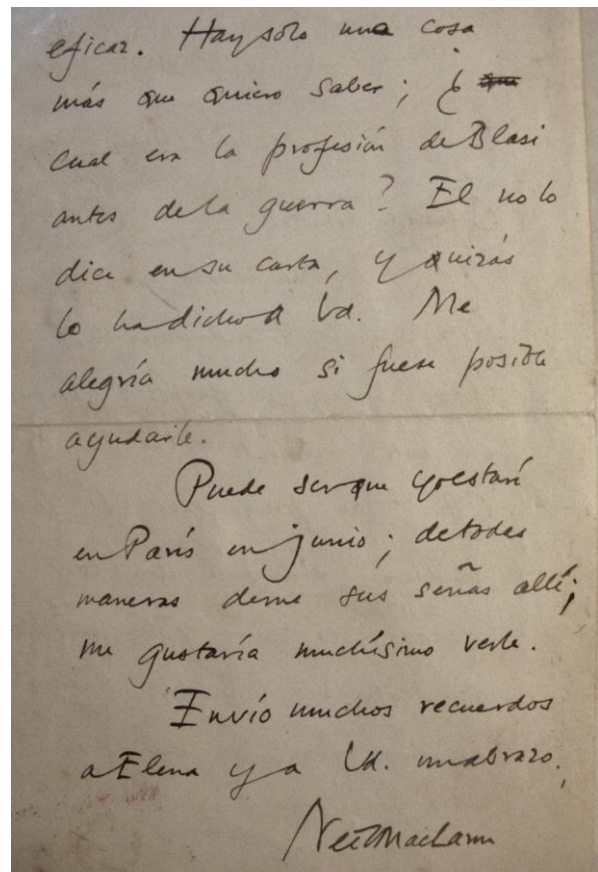 eficaz. Hay sólo una cosa
más que quiero saber; ¿
cual era la profesión de Blasi
antes de la guerra? El no lo
dice en su carta, y quizás
lo ha dicho a Vd. Me
alegría mucho si fuese posible
ayudarle.
Puede ser que yo estaré
en París en junio; de todas
maneras deme sus señas allí;
me gustaría muchísimo verle.
Envío muchos recuerdos
a Elena y a Ud. un abrazo,